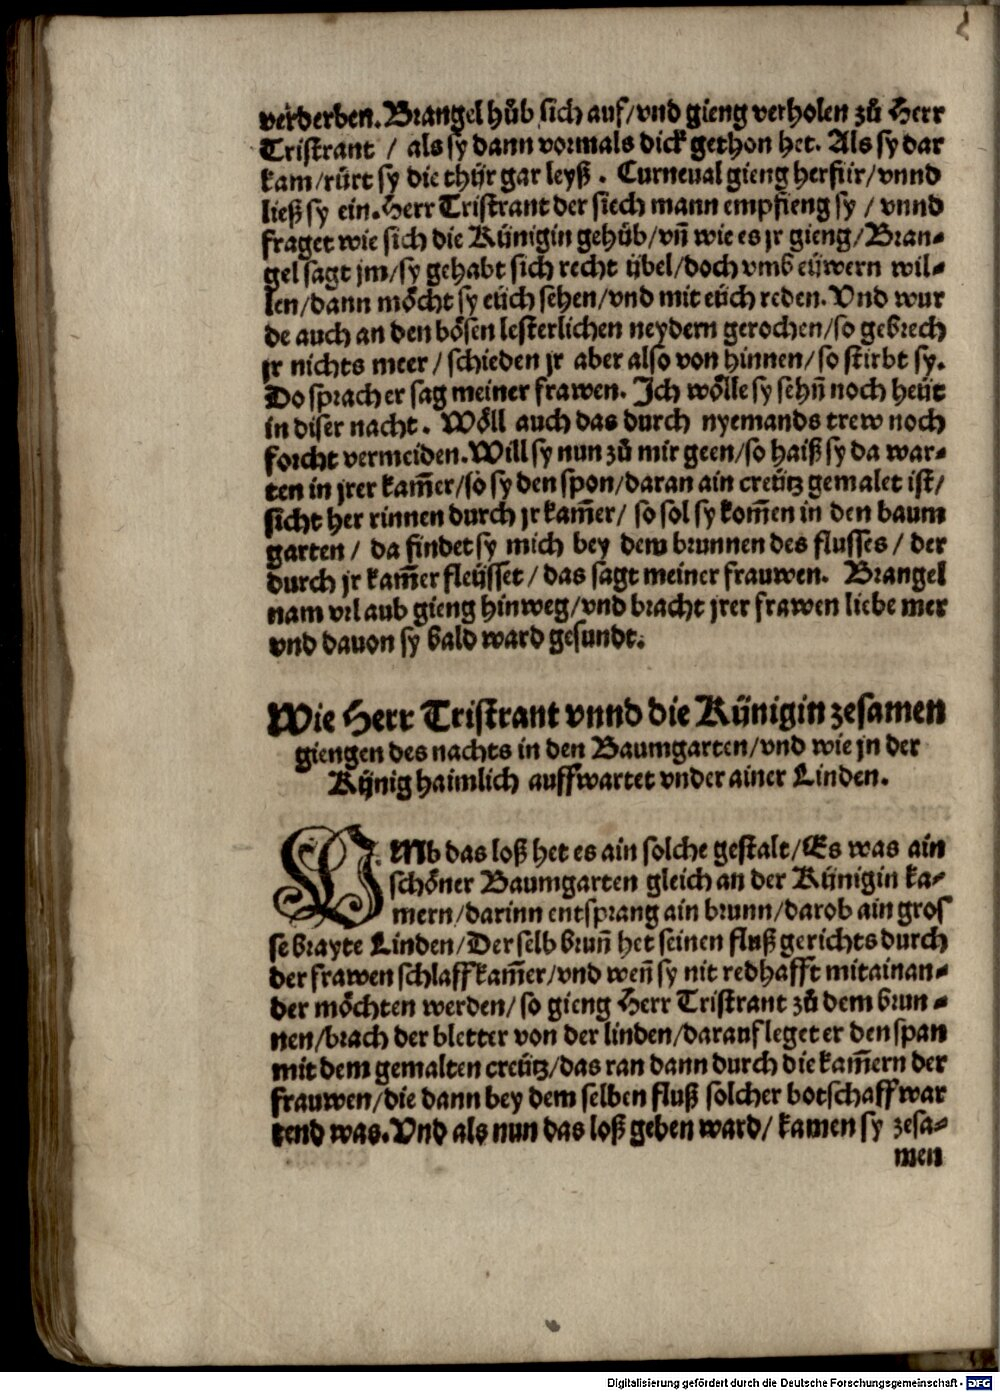 verderben. Brangel hůb sich auf/ vnd gieng verholen zů Herr
Tristrant / als sy dann vormals dick gethon het. Als sy dar
kam/ rürt sy die thür gar leyß . Curneual gieng herfür/ vnnd
ließ sy ein. Herr Tristrant der siech mann empfieng sy / vnnd
fraget wie sich die Künigin gehůb/ vñ wie es jr gieng/ Bran⸗
gel sagt jm/ sy gehabt sich recht übel/ doch vmb eüwern wil⸗
len/ dann möcht sy eüch sehen/ vnd mit eüch reden. Vnd wur
de auch an den bösen lesterlichen neydern gerochen/ so gebrech
jr nichts meer / schieden jr aber also von hinnen/ so stirbt sy.
Do sprach er sag meiner frawen. Ich wölle sy sehñ noch heüt
in diser nacht. Wöll auch das durch nyemands trew noch
forcht vermeiden. Will sy nun zů mir geen/ so haiß sy da war⸗
ten in jrer kam̃er/ so sy den spon/ daran ain creütz gemalet ist/
sicht her rinnen durch jr kam̃er/ so sol sy kom̃en in den baum
garten / da findet sy mich bey dem brunnen des flusses / der
durch jr kam̃er fleüsset / das sagt meiner frauwen. Brangel
nam vrlaub gieng hinweg/ vnd bracht jrer frawen liebe mer
vnd dauon sy bald ward gesundt.
Wie Herr Tristrant vnnd die Künigin zesamen
giengen des nachts in den Baumgarten/ vnd wie jn der
Künig haimlich auffwartet vnder ainer Linden.
VMb das loß het es ain solche gestalt/ Es was ain
schöner Baumgarten gleich an der Künigin ka⸗
mern/ darinn entsprang ain brunn/ darob ain gros
se brayte Linden/ Der selb bruñ het seinen fluß gerichts durch
der frawen schlaffkam̃er/ vnd weñ sy nit redhafft mitainan⸗
der möchten werden/ so gieng Herr Tristrant zů dem brun⸗
nen/ brach der bletter von der linden/ darauf leget er den span
mit dem gemalten creütz/ das ran dann durch die kam̃ern der
frauwen/ die dann bey dem selben fluß solcher botschaff war
tend was. Vnd als nun das loß geben ward/ kamen sy zesa⸗
men
Digitalisierung gefördert durch die Deutsche Forschungsgemeinschaft - DFG